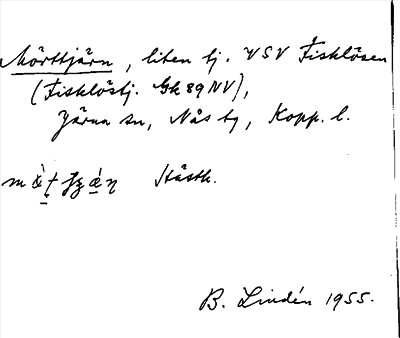 Mörttjärn, liten tj. VSV Fisklösen
(Fisklöstj. Gk 89 NV),
Järna sn, Nås tg, Kopp. l.
Håsth.
B. Lindén 1955.